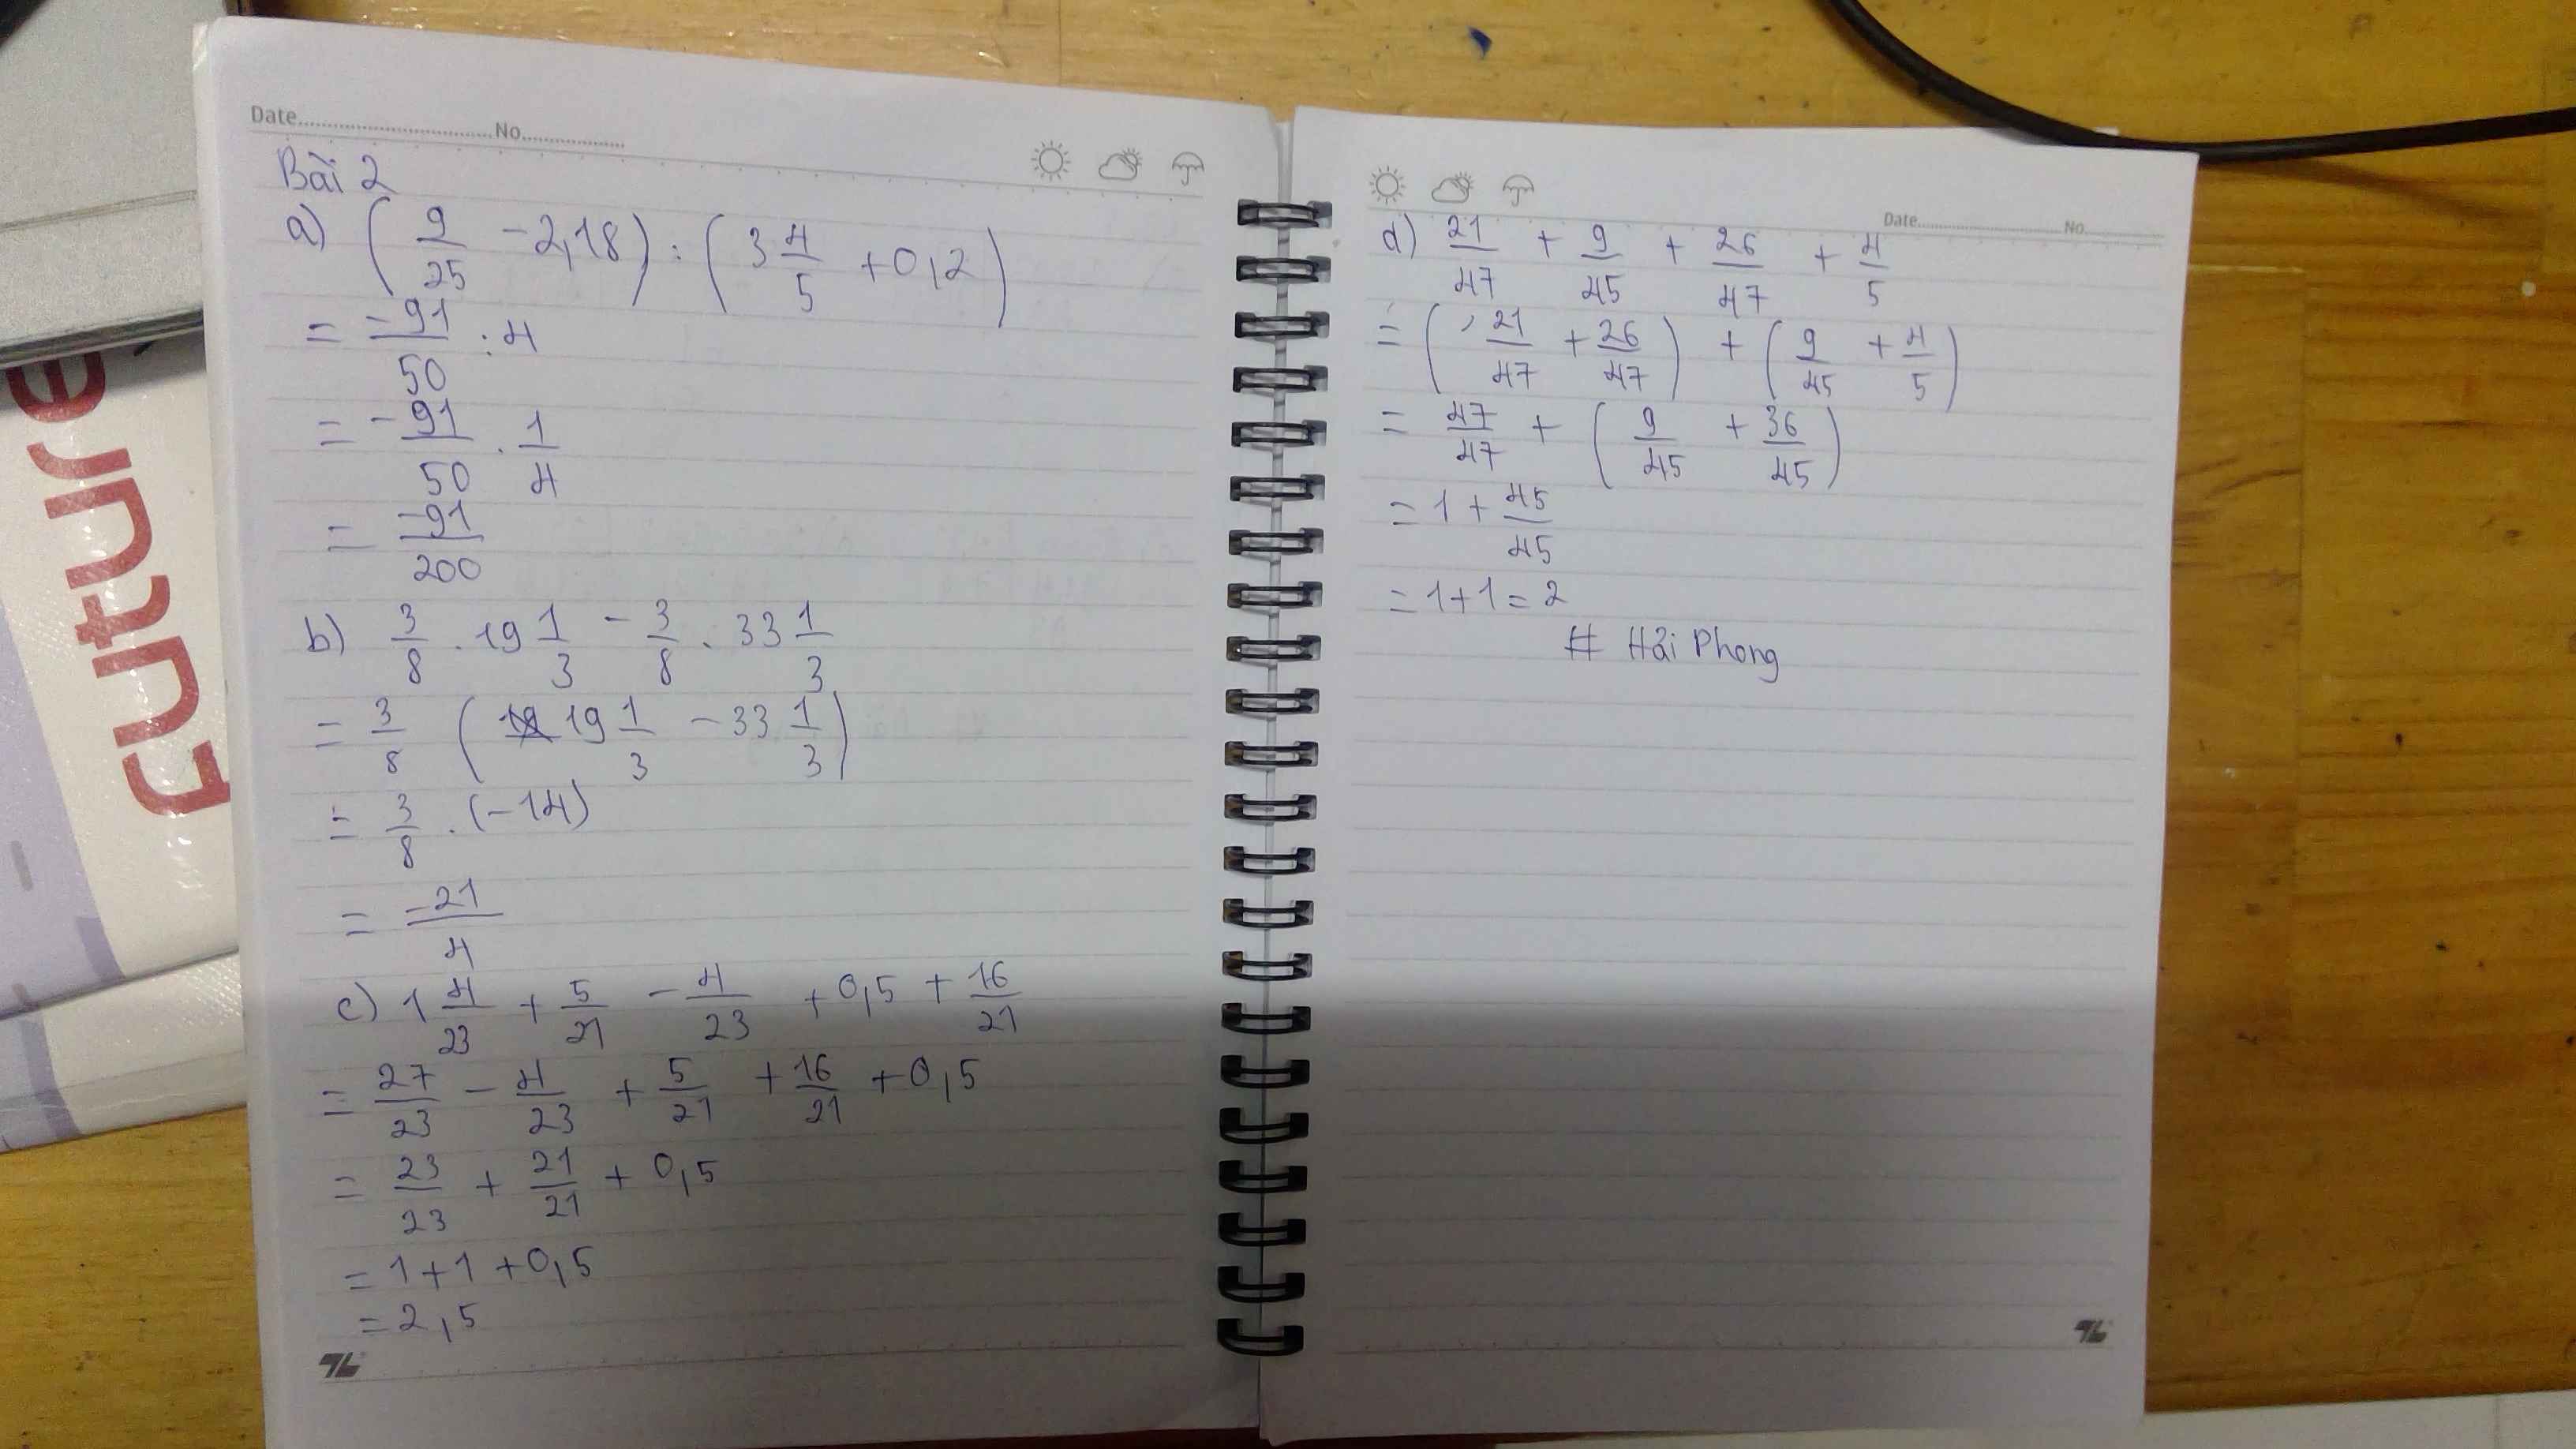 Date..............................No................
Bài 2
a) (9/25 - 2,18) : (3 4/5 + 0,2)
= -91/50 : 4
= -91/50 . 1/4
= -91/200
b) 3/8 . 19 1/3 - 3/8 . 33 1/3
= 3/8 (19 1/3 - 33 1/3)
= 3/8 . (-14)
= -21/4
c) 1 4/23 + 5/21 - 4/23 + 0,5 + 16/21
= 27/23 - 4/23 + 5/21 + 16/21 + 0,5
= 23/23 + 21/21 + 0,5
= 1 + 1 + 0,5
= 2,5
Date..............................No................
d) 21/47 + 9/45 + 26/47 + 4/5
= (21/47 + 26/47) + (9/45 + 4/5)
= 47/47 + (9/45 + 36/45)
= 1 + 45/45
= 1 + 1 = 2
# Hải Phong
future